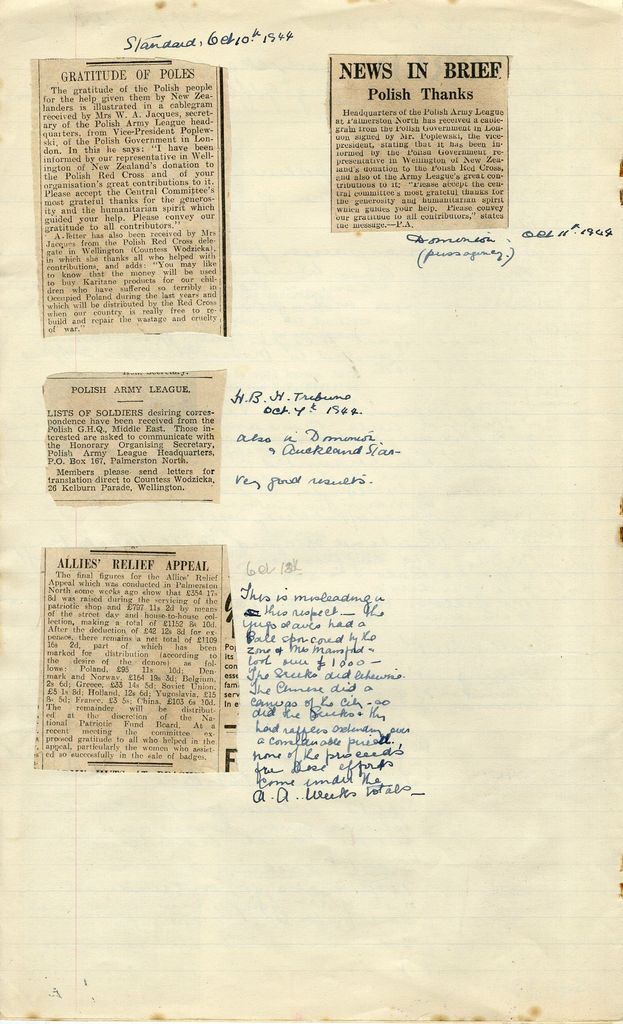 Standard, Oct 10th 1944
GRATITUDE OF POLES
The gratitude of the Polish people
for the help given them by New Zea-
landers is illustrated in a cablegram
received by Mrs W. A. Jacques, secret-
ary of the Polish Army League head-
quarters, from Vice-President Poplew-
ski, of the Polish Government in Lon-
don. In this he says: "I have been
informed by our representative in Well-
ington of New Zealand's donation to
the Polish Red Cross and of your
organisation's great contributions to it.
Please accept the Central Committee's
most grateful thanks for the generos-
ity and the humanitarian spirit which
guided your help. Please convey our
gratitude to all contributors."
A letter has also been received by Mrs
Jacques from the Polish Red Cross dele-
gate in Wellington (Countess Wodzicka),
in which she thanks all who helped with
contributions, and adds: "You may like
to know that the money will be used
to buy Karitane products for our chil-
dren who have suffered so terribly in
Occupied Poland during the last years and
which will be distributed by the Red Cross
when our country is really free to re-
build and repair the wastage and cruelty
of war."
NEWS IN BRIEF
Polish Thanks
Headquarters of the Polish Army League
at Palmerston North has received a cable-
gram from the Polish Government in Lon-
don signed by Mr. Poplewski, the vice-
president, stating that it has been in-
formed by the Polish Government re-
presentative in Wellington of New Zea-
land's donation to the Polish Red Cross,
and also of the Army League's great con-
tributions to it; "Please accept the cen-
tral committee's most grateful thanks for
the generosity and humanitarian spirit
which guides your help. Please convey
our gratitude to all contributors," states
the message.—P.A.
Dominion. Oct 11th 1944
(press agency.)
POLISH ARMY LEAGUE.
LISTS OF SOLDIERS desiring corres-
pondence have been received from the
Polish G.H.Q., Middle East. Those in-
terested are asked to communicate with
the Honorary Organising Secretary,
Polish Army League Headquarters,
P.O. Box 167, Palmerston North.
Members please send letters for
translation direct to Countess Wodzicka,
26 Kelburn Parade, Wellington.
H. B. H. Tribune
Oct. 7th 1944.
also in Dominion
& Auckland Star
Very good results.
ALLIES' RELIEF APPEAL
The final figures for the Allies' Relief
Appeal which was conducted in Palmerston
North some weeks ago show that £354 17s
8d was raised during the servicing of the
patriotic shop and £797 11s 2d by means
of the street day and house-to-house col-
lection, making a total of £1152 8s 10d.
After the deduction of £42 12s 8d for ex-
penses, there remains a net total of £1109
16s 2d, part of which has been
marked for distribution (according to
the desire of the donors) as fol-
lows: Poland, £95 11s 10d; Den-
mark and Norway, £164 19s 3d; Belgium,
2s 6d; Greece, £33 14s 5d; Soviet Union,
£5 1s 8d; Holland, 12s 6d; Yugoslavia, £15
8s 5d; France, £3 5s; China, £103 6s 10d.
The remainder will be distribut-
ed at the discretion of the Na-
tional Patriotic Fund Board. At a
recent meeting the committee ex-
pressed gratitude to all who helped in the
appeal, particularly the women who assist-
ed so successfully in the sale of badges.
Oct 13th
This is misleading in
this respect — The
Yugoslavs had a
Ball sponsored by the
Zone & Mrs
took over £1000 —
The Greeks did likewise.
The Chinese did a
canvas of the city — so
did the Greeks & they
had raffles extending over
a considerable period,
none of the proceeds
from these efforts
come under the
A. A. Weeks totals —